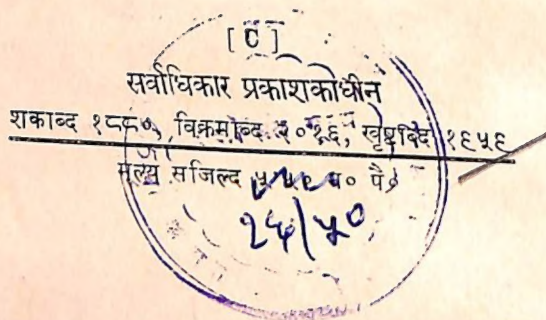 [ C ]
सर्वाधिकार प्रकाशकाधीन
शकाब्द १८८०, विक्रमाब्द २०१६, खृष्टाब्द १९५९
मूल्य सजिल्द न० पै०
२६/५०